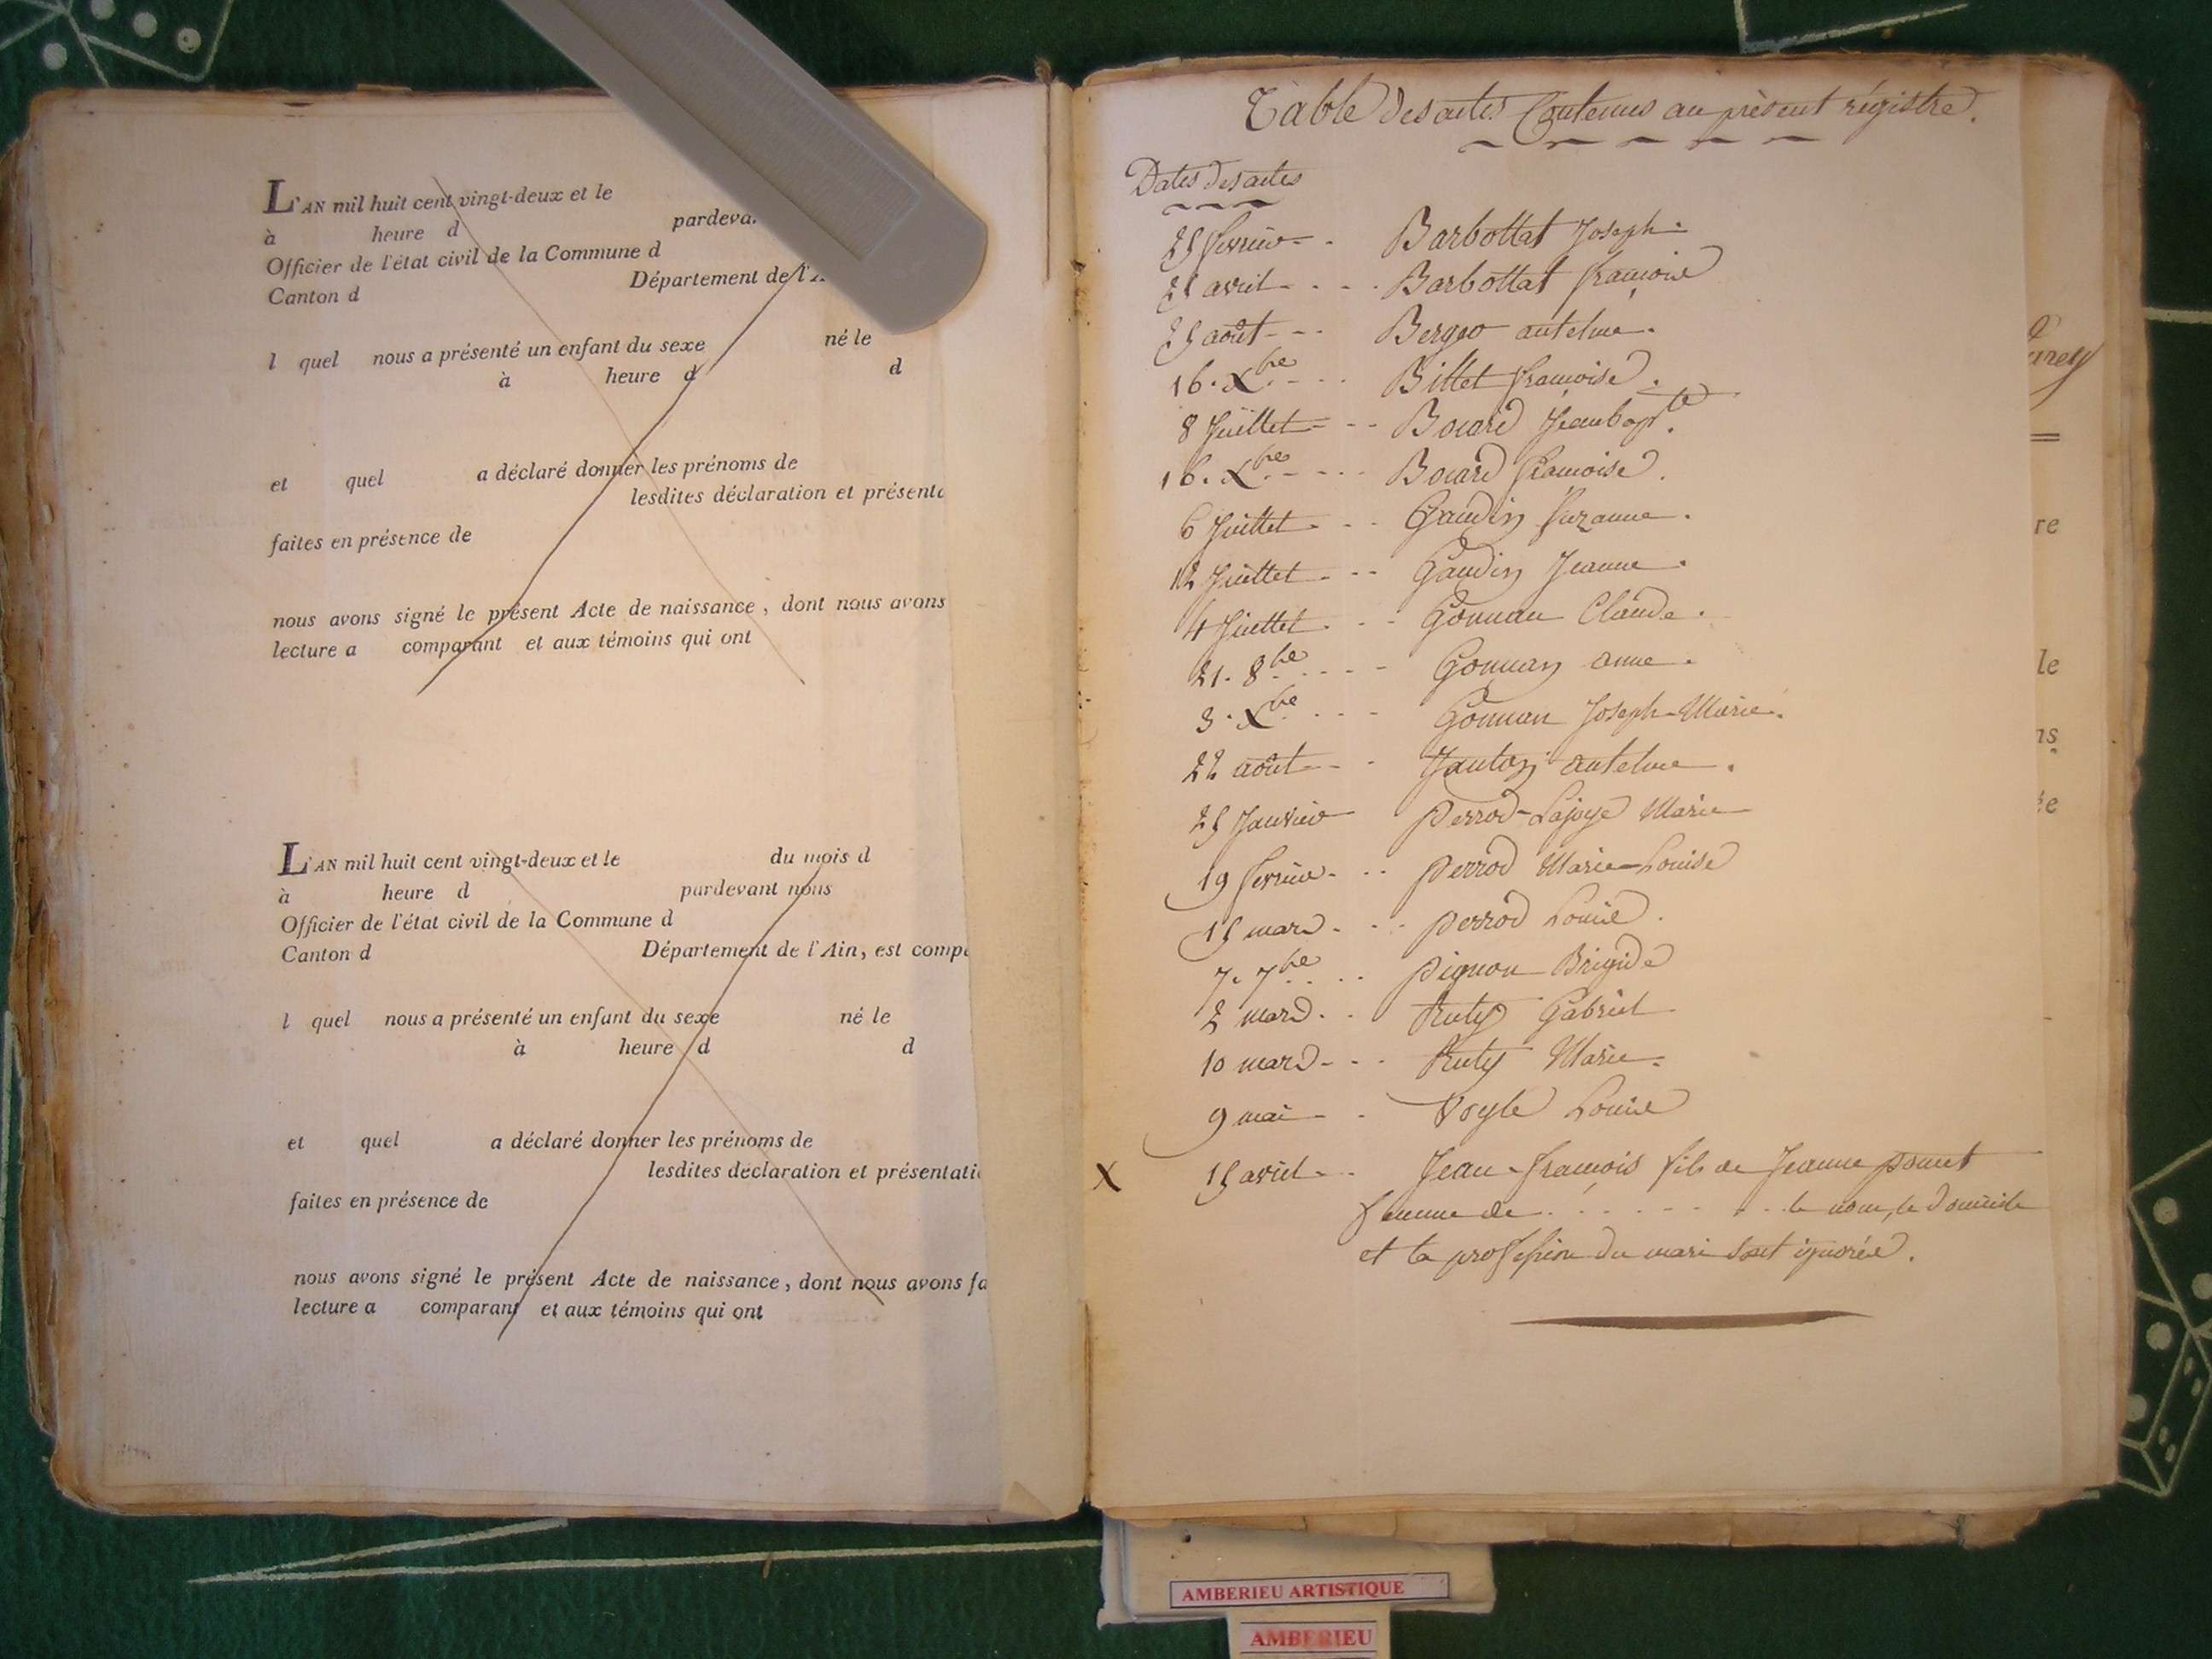 L'AN mil huit cent vingt-deux et le
à heure d pardeva
Officier de l'état civil de la Commune d
Canton d Département de l'A
l quel nous a présenté un enfant du sexe né le
à heure d d
et quel a déclaré donner les prénoms de
lesdites déclaration et présenta
faites en présence de
nous avons signé le présent Acte de naissance, dont nous avons
lecture a comparant et aux témoins qui ont
L'AN mil huit cent vingt-deux et le du mois d
à heure d pardevant nous
Officier de l'état civil de la Commune d
Canton d Département de l'Ain, est compa
l quel nous a présenté un enfant du sexe né le
à heure d d
et quel a déclaré donner les prénoms de
lesdites déclaration et présentati
faites en présence de
nous avons signé le présent Acte de naissance, dont nous avons fa
lecture a comparant et aux témoins qui ont
Table des actes Contenus au présent régistre.
Dates des actes
25 février - - Barbottat Joseph.
25 avril - - - - Barbottat françois
25 août - - - Berger antelme.
16. Xbre - - - Billet françoise.
8 Juillet - - - Bouard Jean bapte.
16. Xbre - - - - Bouard françoise.
6 Juillet - - - Gaudin Suzanne.
12 Juillet - - - Gaudin Jeanne.
4 Juillet - - - Gonnan Claude.
21. 8bre - - - - Gonnan anne.
3. Xbre - - - Gonnan Joseph-Marie.
22 août - - - Janton antelme.
25 Janvier Perrod-Lajoye Marie
19 février - - - Perrod Marie-Louise
15 mars - - - Perrod Louise.
7. 7bre - - - Pignon Brigide
2 mars - - Ruty Gabriel
10 mars - - - Ruty Marie.
9 mai - - Voyle Louise
X 15 avril - - Jean-françois fils de Jeanne pomet
femme de . . . . . . . le nom, le domicile
et la profession du mari sont ignorés.
re
le
ns
AMBERIEU ARTISTIQUE
AMBERIEU